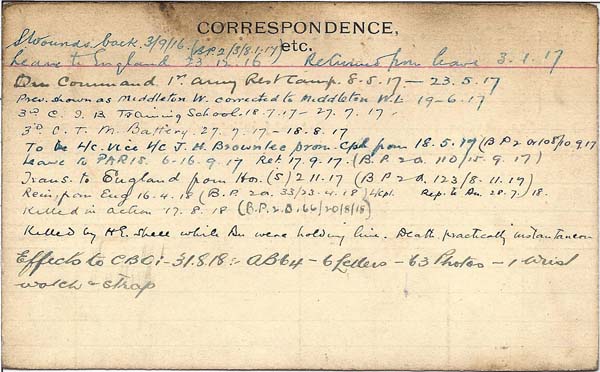 CORRESPONDENCE,
etc.
S/Wounds back 3/9/16. (B.P.2/5/8.1.17)
Leave to England 23.12.16 Returned from leave 3.1.17
On Command 1st Army Rest Camp. 8.5.17 — 23.5.17
Prev. shown as Middleton W. corrected to Middleton W.L. 19-6-17
3rd C. I. B Training School. 18.7.17 - 27.7.17.
3rd C. T. M Battery. 27.7.17 - 18.8.17
To be L/C. vice L/C J. H. Brownlee prom. Cpl from 18.5.17 (B P 2 a 108/10.9.17
Leave to PARIS. 6-16.9.17 Ret 17.9.17. (B.P. 2 a. 110/15.9.17)
Trans. to England from Hos. (S) 2.11.17 (B.P 2 a. 123/8.11.17)
Rein. from Eng 16.4.18 (B.P. 2a. 33/23.4.18) L/Cpl. Rep. to Bn. 28.7.18.
Killed in action 17.8.18 (B.P.2.D.66/20/8/18)
Killed by H.E. shell while Bn were holding line. Death practically instantaneous
Effects to CBO :- 31.8.18 :- AB64 - 6 Letters - 63 Photos - 1 Wrist
watch & strap